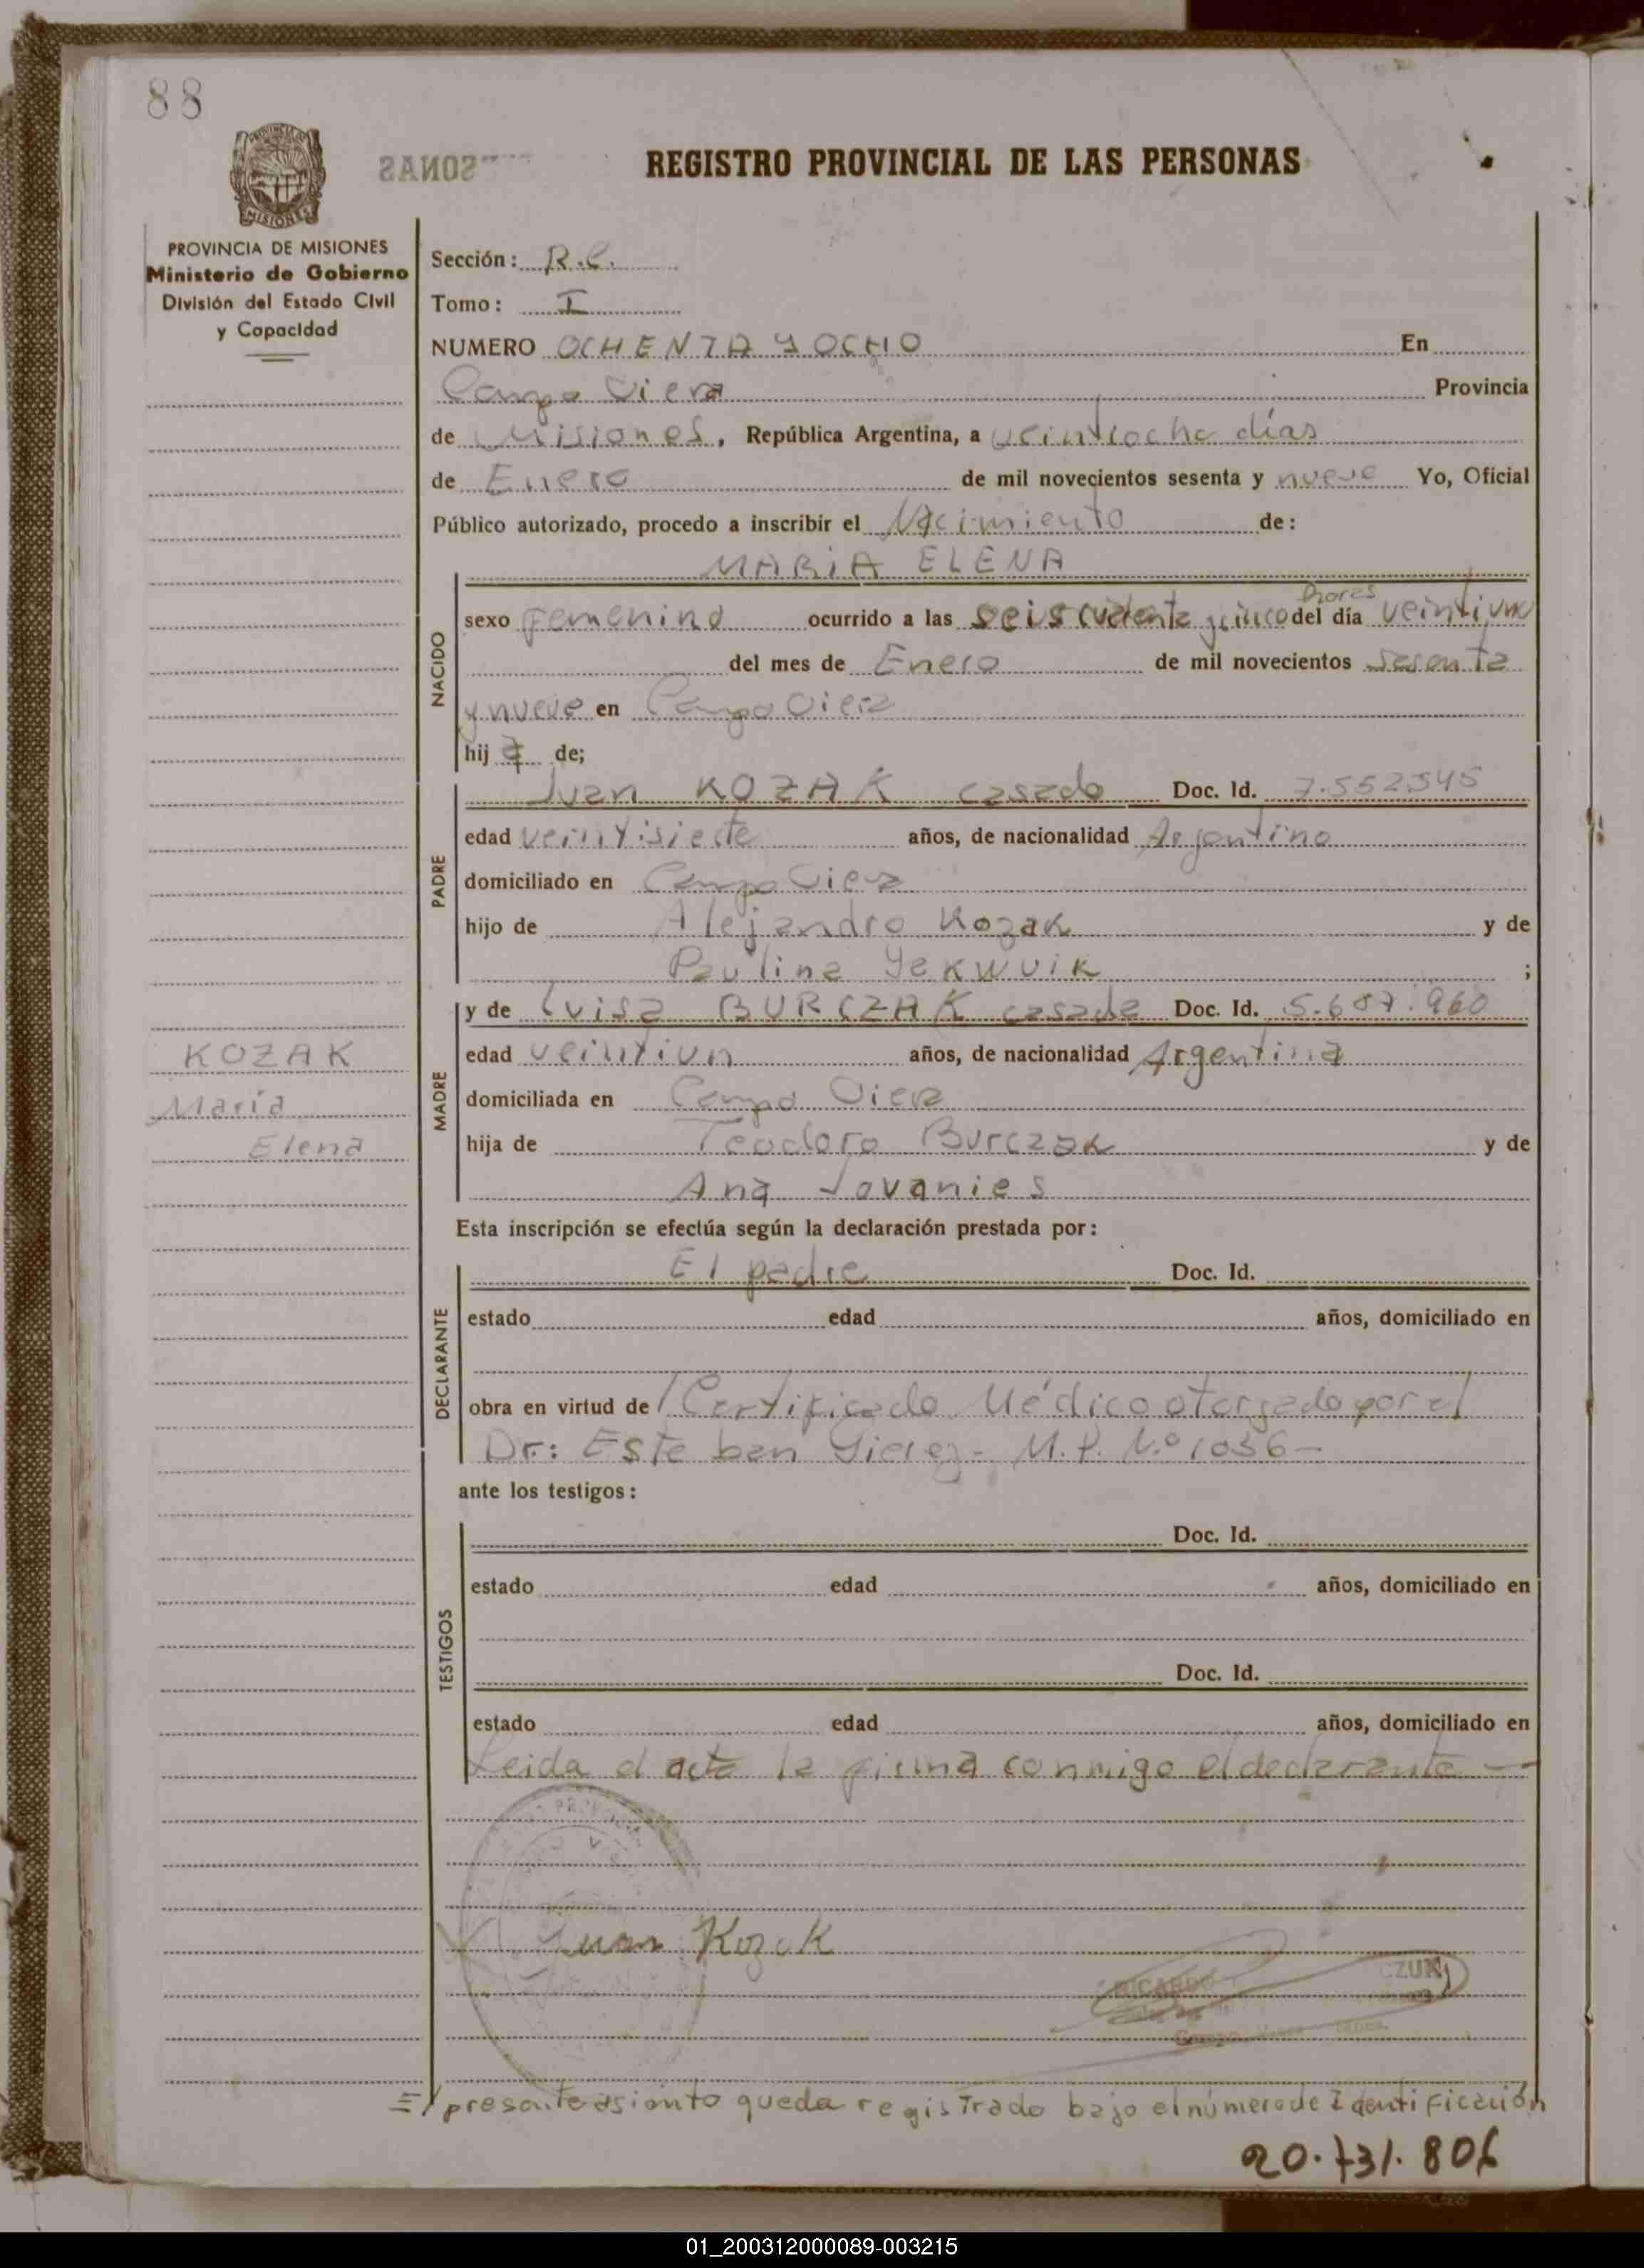 88
PROVINCIA DE
MISIONES
SONAS
REGISTRO PROVINCIAL DE LAS PERSONAS
PROVINCIA DE MISIONES
Ministerio de Gobierno
División del Estado Civil
y Capacidad
Sección: R.C.
Tomo: I
NUMERO OCHENTA Y OCHO En
Campo Viera Provincia
de Misiones, República Argentina, a veintiocho días
de Enero de mil novecientos sesenta y nueve Yo, Oficial
Público autorizado, procedo a inscribir el Nacimiento de:
MARIA ELENA
NACIDO
horas
sexo femenino ocurrido a las seis cuarenta y cinco del día veintiuno
del mes de Enero de mil novecientos sesenta
y nueve en Campo Viera
hij a de;
PADRE
Juan KOZAK casado Doc. Id. 7.552.545
edad veintisiete años, de nacionalidad Argentino
domiciliado en Campo Viera
hijo de Alejandro Kozak y de
Paulina Yakwuik ;
MADRE
y de Luisa BURCZAK casada Doc. Id. 5.687.960
edad veintiun años, de nacionalidad Argentina
domiciliada en Campo Viera
hija de Teodoro Burczak y de
Ana Jovanies
KOZAK
Maria
Elena
Esta inscripción se efectúa según la declaración prestada por:
DECLARANTE
El padre Doc. Id.
estado edad años, domiciliado en
obra en virtud de Certificado Médico otorgado por el
Dr: Esteban M.P. N.º 1036-
ante los testigos:
TESTIGOS
Doc. Id.
estado edad años, domiciliado en
Doc. Id.
estado edad años, domiciliado en
Leida el acta la firma conmigo el declarante -
Juan Kozak
RICARDO CZUK
El presente asiento queda registrado bajo el número de Identificación
20.731.806
01_200312000089-003215